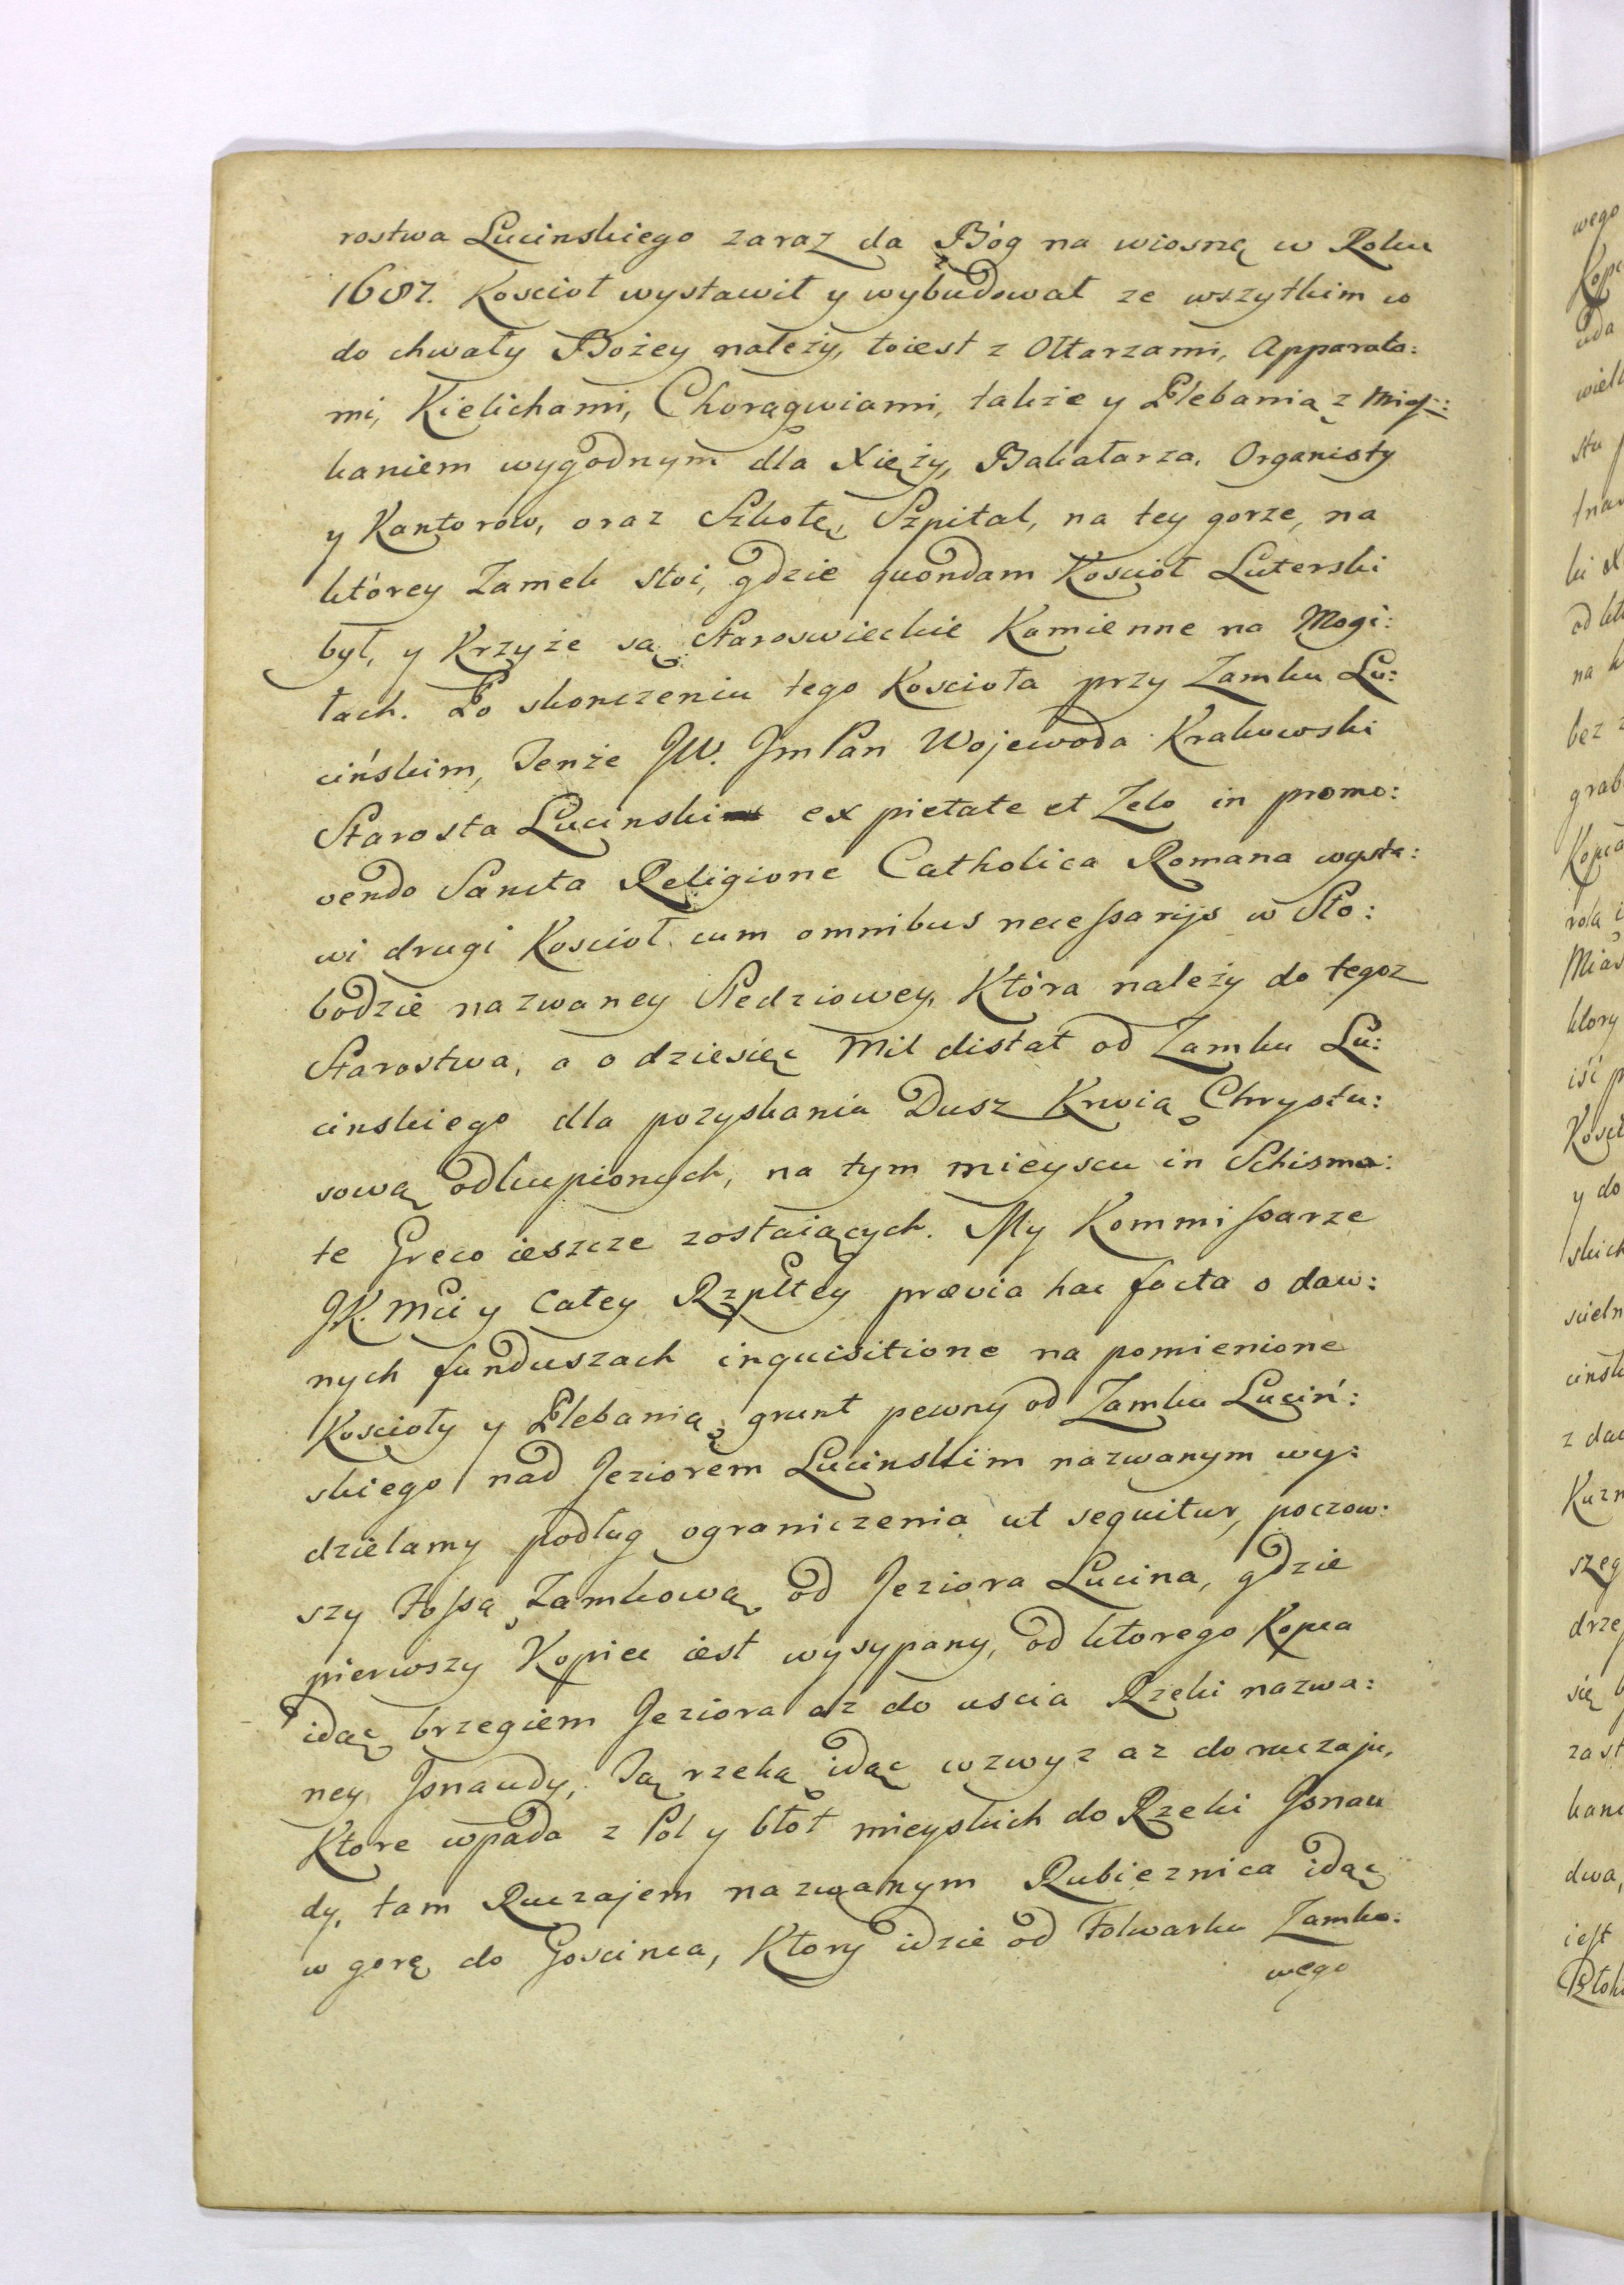 rostwa Lucinskiego zaraz da Bóg na wiosnę w Roku
1687. Koscioł wystawił y wybudował ze wszytkim co
do chwały Bożey należy, toiest z Ołtarzami, Apparata:
mi, Kielichami, Chorągwiami, także y Plebanią z Miesz:
kaniem wygodnym dla Xięży, Bakałarza, Organisty
y Kantorów, oraz Szkołę, Szpital, na tey gorze, na
którey Zamek stoi, gdzie quondam Kosciół Luterski
był, y Krzyże są Staroswieckie Kamienne na Mogi:
łach. Po skonczeniu tego Koscioła przy Zamku Lu:
cińskim, Tenże JW. JmPan Wojewoda Krakowski
Starosta Lucinski ex pietate et Zelo in promo:
vendo Sancta Religione Catholica Romana wysta:
wi drugi Kosciół cum omnibus necessarijs w Sło:
bodzie nazwaney Sledziowey, Która należy do tegoz
Starostwa, a o dziesięc Mil distat od Zamku Lu:
cinskiego dla pozyskania Dusz Krwią Chrystu:
sową odkupionych, na tym mieyscu in Schisma:
te Greco ieszcze zostaiących. My Kommissarze
JK. Mci y całey Rzpltey prævia hac facta o daw:
nych funduszach inquisitione na pomienione
Koscioły y Plebanią grunt pewny od Zamku Luciń:
skiego nad Jeziorem Lucinskim nazwanym wy:
dzielamy podług ograniczenia ut sequitur, poczow:
szy Fossą Zamkową od Jeziora Lucina, gdzie
pierwszy Kopiec iest wysypany, od ktorego Kopca
idąc brzegiem Jeziora aż do uscia Rzeki nazwa:
ney Jsnaudy, Tą rzeką idąc wzwyz az do ruczaju,
Ktore wpada z Pol y błót mieyskich do Rzeki Jsnau
dy, tam Ruczajem nazwanym Rubieznica idąc
w gorę do Goscinca, Ktory idzie od Folwarku Zamko:
wego